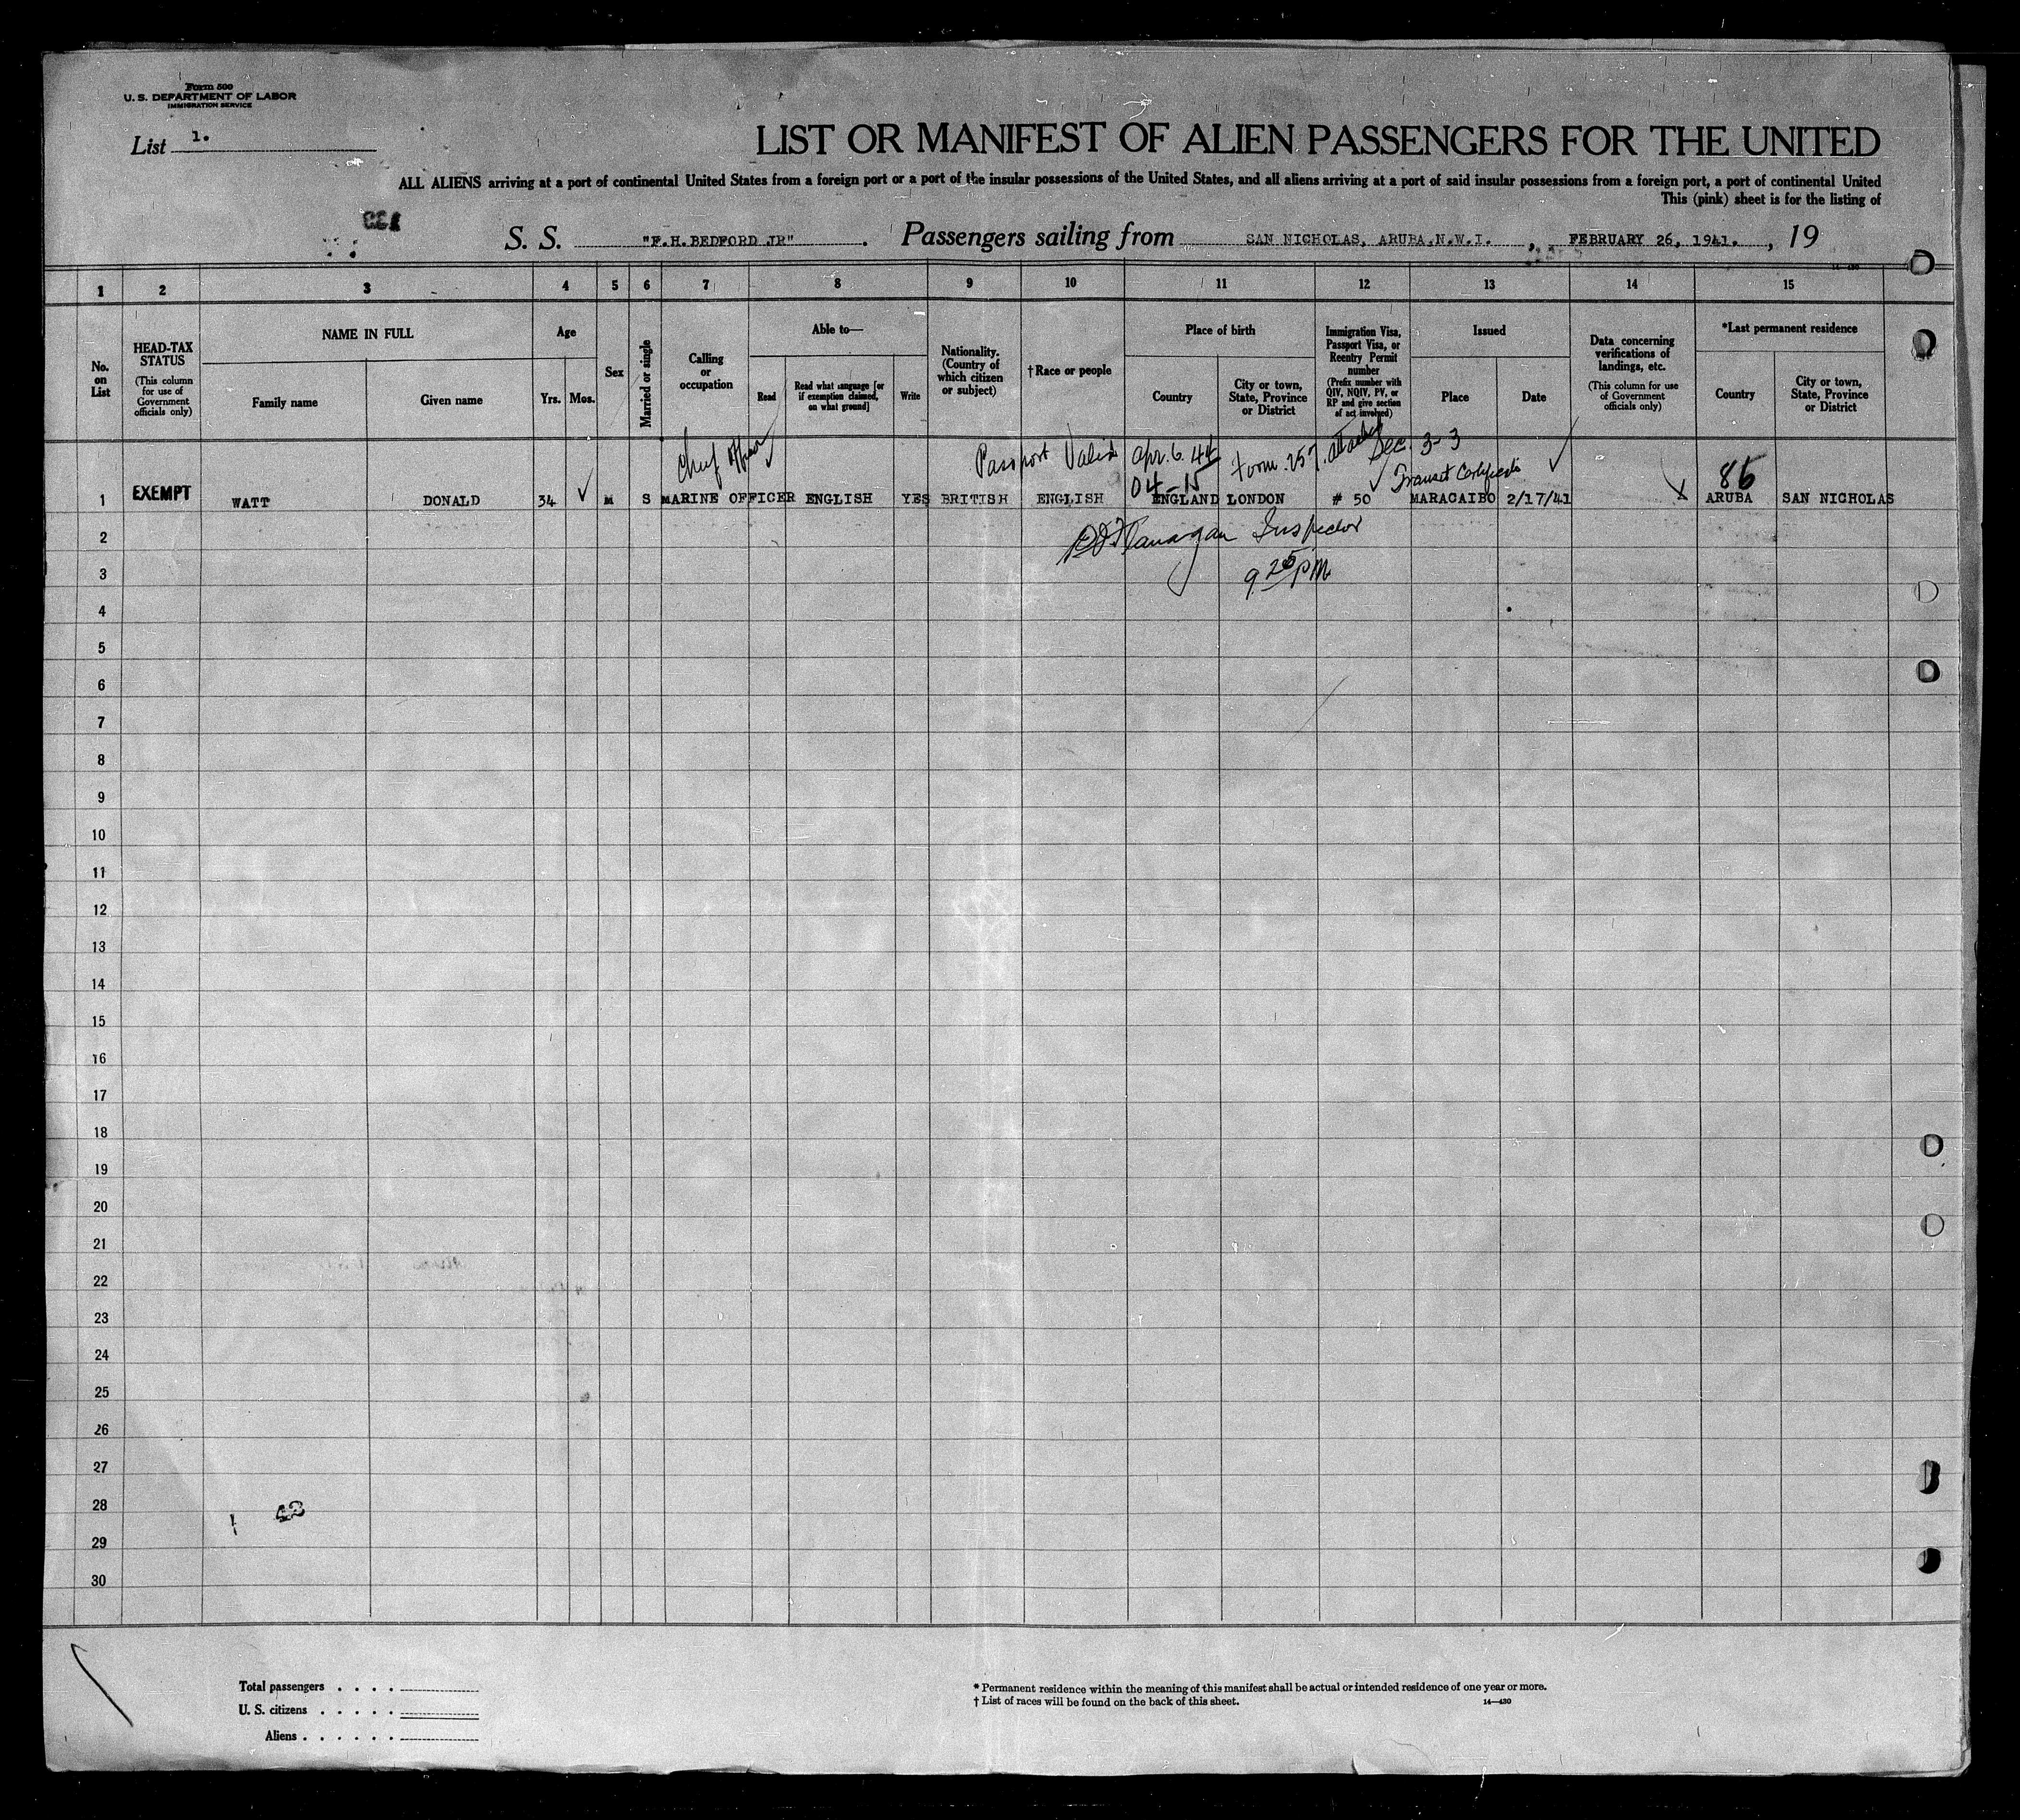 Form 500
U. S. DEPARTMENT OF LABOR
IMMIGRATION SERVICE
List 1.
LIST OR MANIFEST OF ALIEN PASSENGERS FOR THE UNITED
ALL ALIENS arriving at a port of continental United States from a foreign port or a port of the insular possessions of the United States, and all aliens arriving at a port of said insular possessions from a foreign port, a port of continental United
This (pink) sheet is for the listing of
S. S. "F.H.BEDFORD JR" . Passengers sailing from SAN NICHOLAS, ARUBA.N.W.I. , FEBRUARY 26, 1941. , 19
1 2 3 4 5 6 7 8 9 10 11 12 13 14 15
No. on List
HEAD-TAX STATUS
(This column for use of Government officials only)
NAME IN FULL
Family name
Given name
Age
Yrs. Mos.
Sex
Married or single
Calling or occupation
Able to—
Read
Read what language [or if exemption claimed, on what ground]
Write
Nationality. (Country of which citizen or subject)
†Race or people
Place of birth
Country
City or town, State, Province or District
Immigration Visa, Passport Visa, or Reentry Permit number
(Prefix number with QIV, NQIV, PV, or RP and give section of act involved)
Issued
Place
Date
Data concerning verifications of landings, etc.
(This column for use of Government officials only)
*Last permanent residence
Country
City or town, State, Province or District
Chief Officer Passport Valid Apr. 6. 44 Form 257 attached Sec. 3-3
04-15 Transit Certificate 86
1 EXEMPT WATT DONALD 34 ✓ M S MARINE OFFICER ENGLISH YES BRITISH ENGLISH ENGLAND LONDON # 50 MARACAIBO 2/17/41 ARUBA SAN NICHOLAS
Flanagan Inspector
9 25 PM
2
3
4
5
6
7
8
9
10
11
12
13
14
15
16
17
18
19
20
21
22
23
24
25
26
27
28
29
30
Total passengers . . . .
U. S. citizens . . . . .
Aliens . . . . . .
* Permanent residence within the meaning of this manifest shall be actual or intended residence of one year or more.
† List of races will be found on the back of this sheet. 14—430